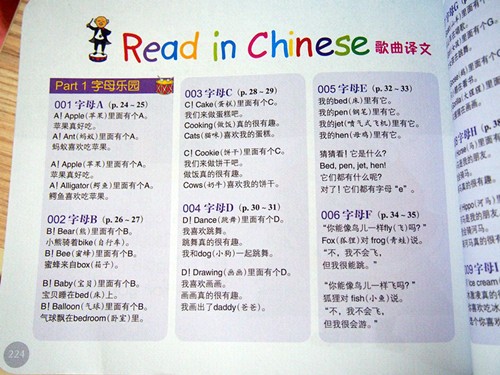 Read in Chinese 歌曲译文
Part 1 字母乐园
001 字母A (p. 24~25)
A! Apple (苹果)里面有个A。
苹果真好吃。
A! Ant (蚂蚁)里面有个A。
蚂蚁喜欢吃苹果。
A! Apple (苹果)里面有个A。
苹果真好吃。
A! Alligator (鳄鱼)里面有个A。
鳄鱼喜欢吃苹果。
002 字母B (p. 26~27)
B! Bear(熊)里面有个B。
小熊骑着bike(自行车)。
B! Bee(蜜蜂)里面有个B。
蜜蜂来自box(箱子)。
B! Baby(宝贝)里面有个B。
宝贝睡在bed(床)上。
B! Balloon(气球)里面有个B。
气球飘在bedroom(卧室)里。
003 字母C (p. 28~29)
C! Cake(蛋糕)里面有个C。
我们来做蛋糕吧。
Cooking(做饭)真的很有趣。
Cats(猫咪)喜欢我的蛋糕。
C! Cookie(饼干)里面有个C。
我们来做饼干吧。
做饭真的很有趣。
Cows(奶牛)喜欢我的饼干。
004 字母D (p. 30~31)
D! Dance(跳舞)里面有个D。
我喜欢跳舞。
跳舞真的很有趣。
我和dog(小狗)一起跳舞。
D! Drawing(画画)里面有个D。
我喜欢画画。
画画真的很有趣。
我画出了daddy(爸爸)。
005 字母E (p. 32~33)
我的bed(床)里有它。
我的pen(钢笔)里有它。
我的jet(喷气式飞机)里有它。
我的hen(母鸡)里有它。
猜猜看!它是什么?
Bed, pen, jet, hen!
它们都有什么呢?
对了!它们都有字母“e”。
006 字母F (p. 34~35)
“你能像鸟儿一样fly(飞)吗?”
Fox(狐狸)对frog(青蛙)说。
“不,我不会飞,
但我很能跳。”
“你能像鸟儿一样飞吗?”
狐狸对fish(小鱼)说。
“不,我不会飞,
但我很会游。”
224